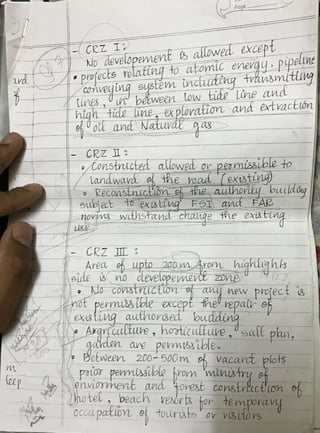 Page
Q.7
- CRZ I:
No developement is allowed except
• projects relating to atomic energy. pipeline
conveying system including transmitting
lines, in between low tide line and
high tide line, exploration and extraction
of oil and Natural gas
- CRZ II:
• Constructed allowed or permissible to
landward of the road (existing)
• Reconstruction of the authority building
subject to existing FSI and FAR
norms withstand change the existing
use
- CRZ III:
Area of upto 200m from highlights
side is no developement zone
• No construction of any new project is
not permissible except the repair of
exating authorised budding
• Argriculture, horticulture, salt plan,
garden are permissible.
• Between 200-500m of vacant plots
prior permissible from ministry of
enviorment and forest construction of
hotel, beach resorts for temporary
occupation of tourists or visitors
und
of
m
leep